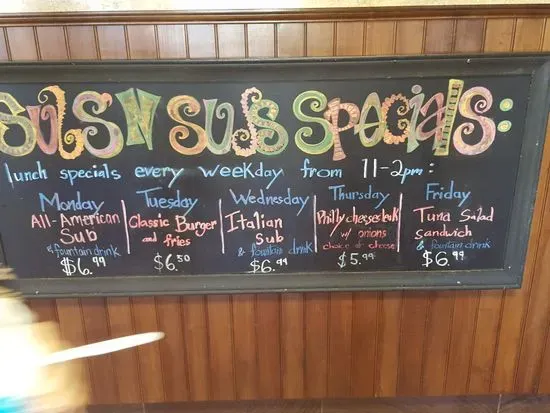 N SUBS SPECIALS:
lunch specials every weekday from 11-2pm:
Monday
All-American
Sub
& fountain drink
$6.99
Tuesday
Classic Burger
and fries
$6.50
Wednesday
Italian
Sub
& fountain drink
$6.99
Thursday
Philly cheesesteak
w/ onions
choice of cheese
$5.99
Friday
Tuna Salad
Sandwich
& fountain drink
$6.99